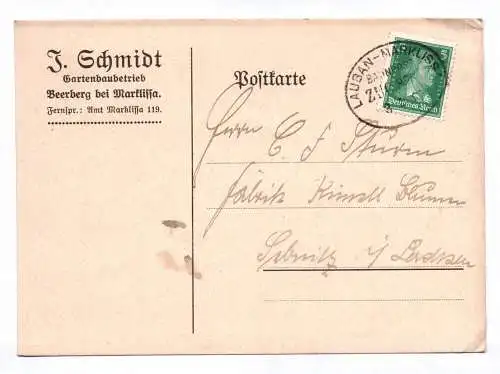 J. Schmidt
Gartenbaubetrieb
Beerberg bei Marklissa.
Fernspr.: Amt Marklissa 119.
Postkarte
LAUBAN-MARKLISS
BAHNP
ZUG
Deutsches Reich
Herrn C. F. Sturm
Fabrik Künstl Blumen
Sebnitz i/ Sachsen